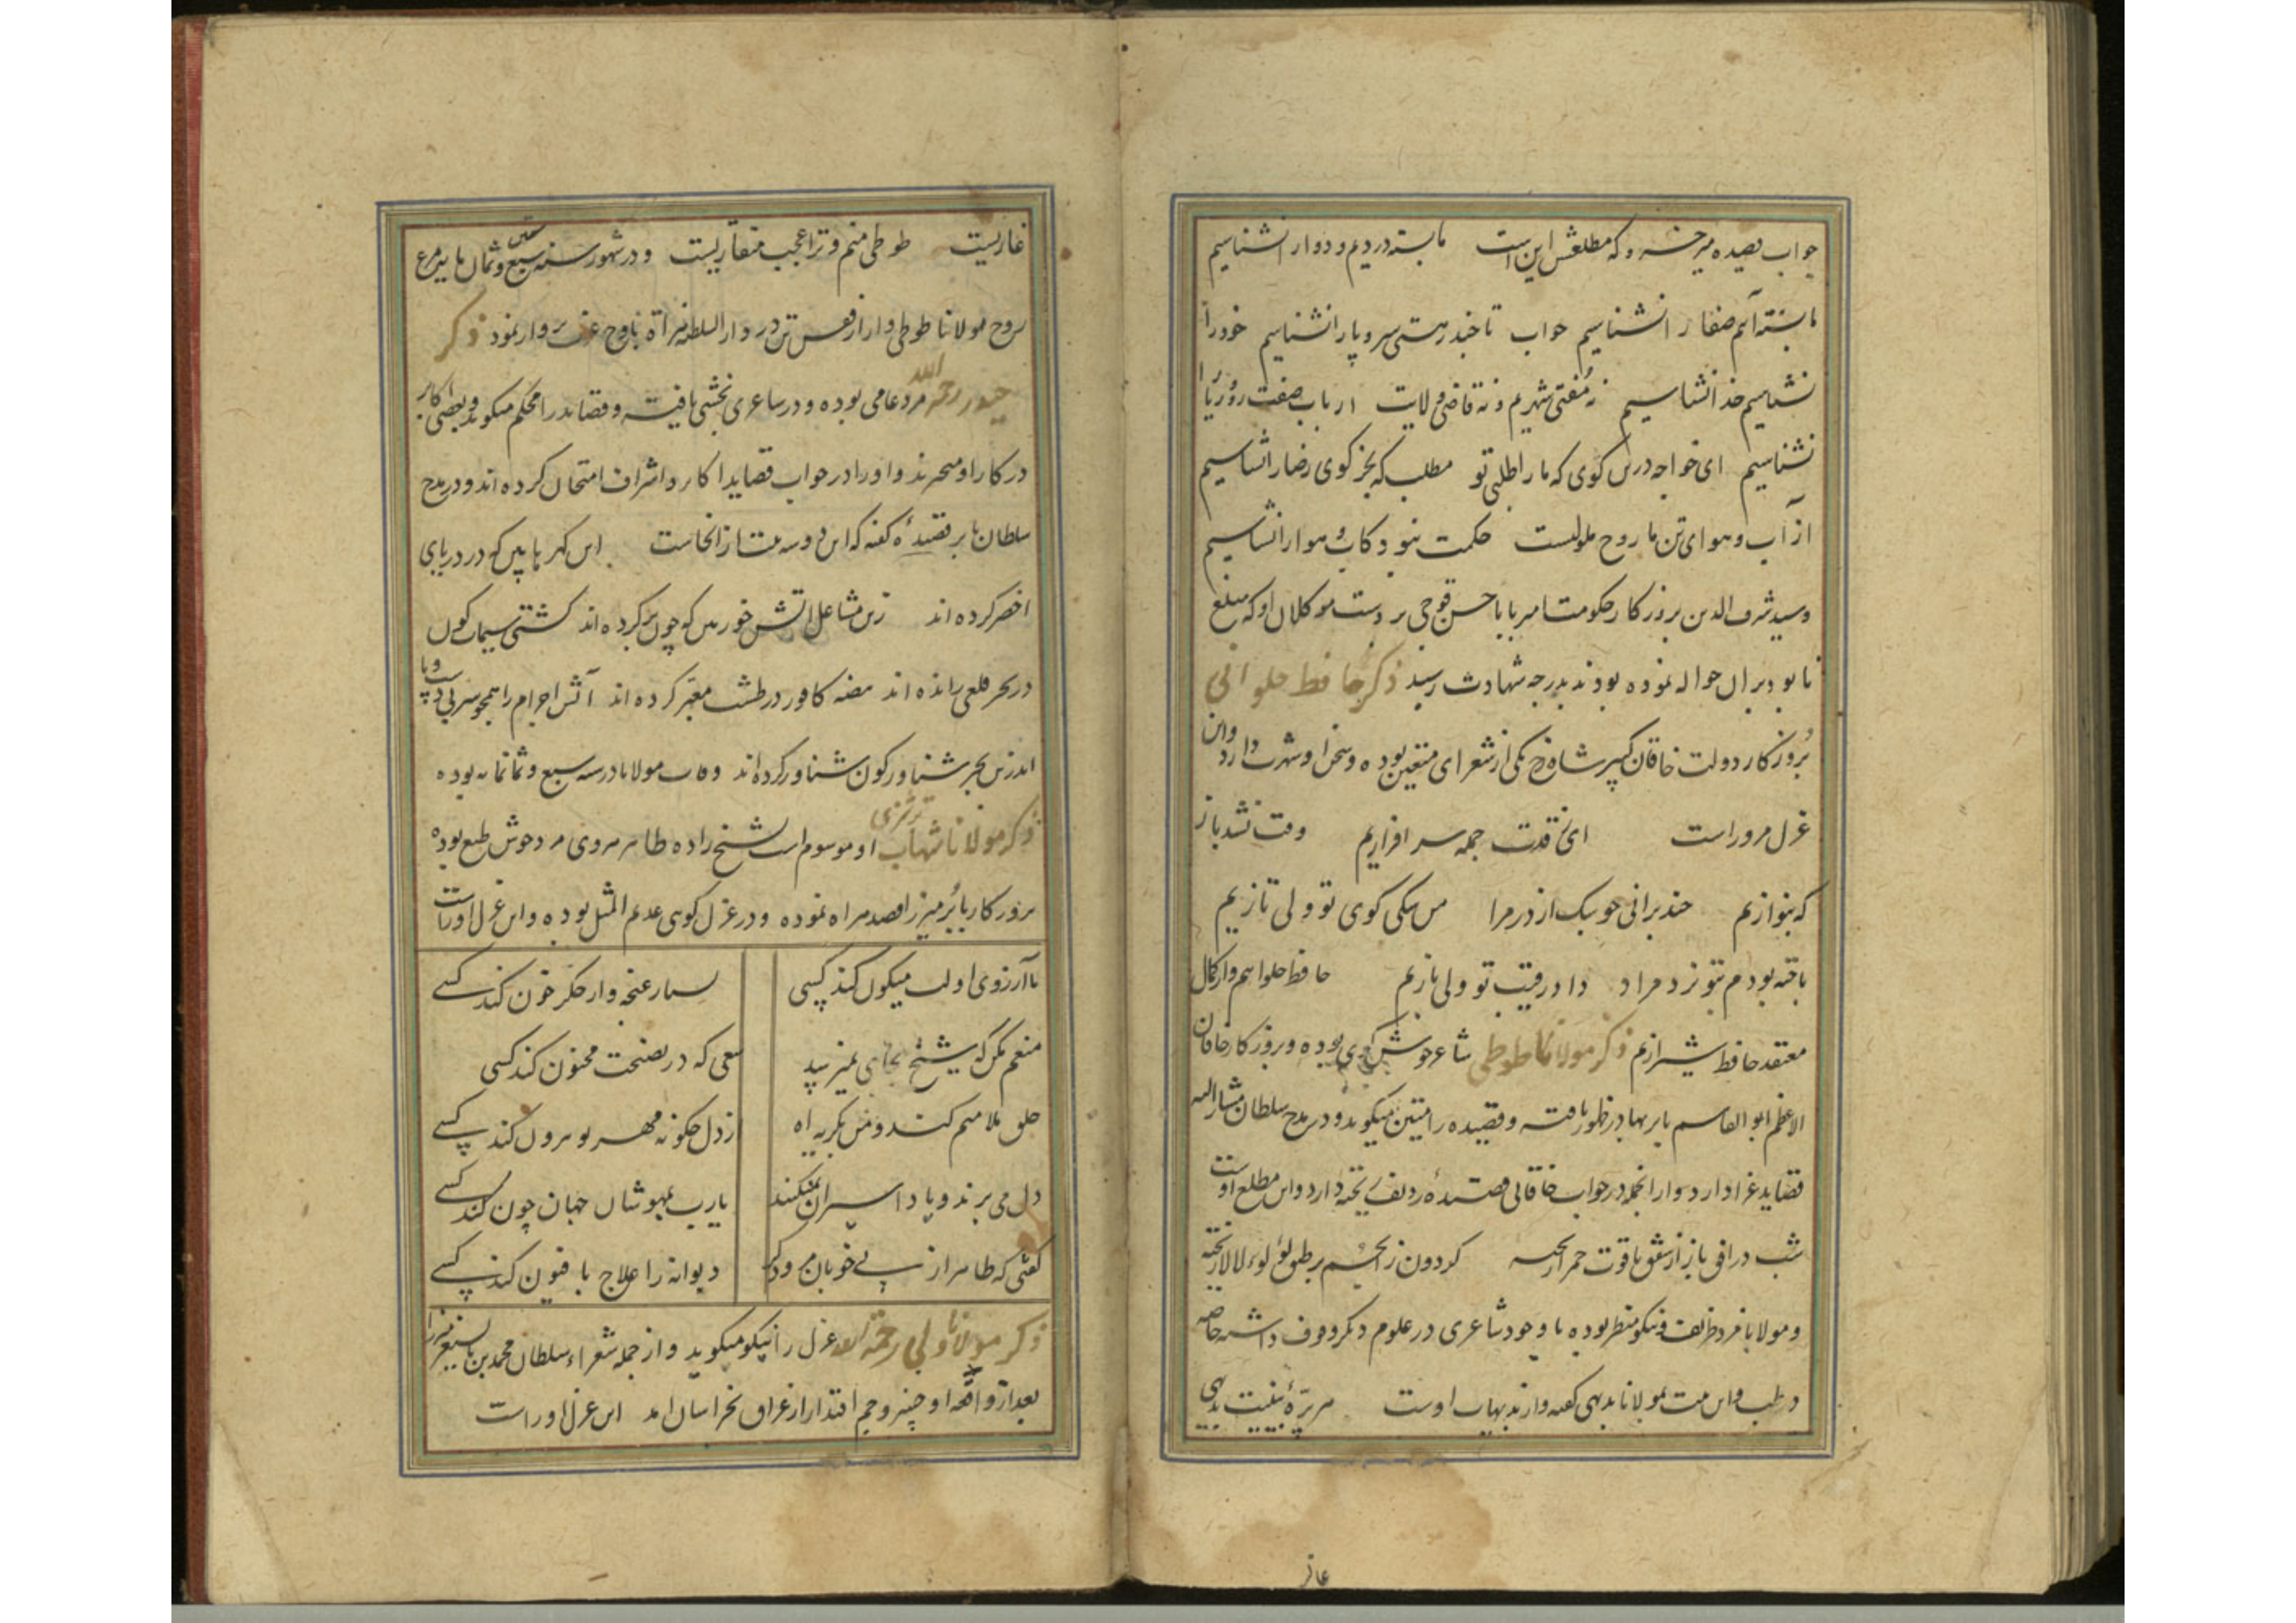 جواب قصیده میر خسرو که مطلعش این است ما بسته دردیم و دوا را نشناسیم
ما بسته آنیم صفا را نشناسیم جواب تا خبد رهستی سر و پا را نشناسیم خود را
نشناسیم خدا نشناسیم نه مفتی شهریم و نه قاضی ولایت ارباب صفت رو ریا را
نشناسیم ای خواجه درس کوی که ما را طلبی تو مطلب که بجز کوی رضا را نشناسیم
از آب و هوای تن ما روح ملولست حکمت بنو د کاب و هوا را نشناسیم
و سید شرف الدین بروزکار حکومت امیر بابا حسن قوچی بر دست موکلان او که مبلغ
نابود بران حواله نموده بودند بدرجه شهادت رسید ذکر حافظ حلوائی
بروزکار دولت خاقان کبیر شاهرخ یکی از شعرای متعین بوده و سخن او شهرت دارد و این
غزل مر وراست ای قدت جمله سرافرازیم وقت نشد باز
که بنوازیم چند برانی چو سک از در مرا من سکی کوی تو ولی تازیم
باخته بودم بتو نرد مراد داد رقیب تو ولی بازیم حافظ حلوایم و از کمال
معتقد حافظ شیرازیم ذکر مولانا طوطی شاعر خوش کوی بوده و بروزکار خاقان
الاعظم ابو القاسم بابر بهادر ظهور یافته و قصیده را متین میکوید و در مدح سلطان مشار الیه
قصاید غرا دارد و از انجمله در جواب خاقانی قصیدهٔ ردیف ریخته دارد و این مطلع اوست
شب در افق باز از شفق یاقوت حمرا ریخته کردون ز انجم بر طبق لؤلؤ لالا ریخته
و مولانا مرد ظریف و نیکو منظر بوده با وجود شاعری در علوم دیکر وقوف داشته خاصه
در طب و این بیت بمولانا بدیهی کفته و از بدیهیات اوست بدیهی
غازیست طوطی منم و ترا عجب منقاریست و در شهور سنه سبع و ثمانمایه مرغ
روح مولانا طوطی وار از قفس تن در دار السلطنه هراة باوج پرواز نمود ذکر
حیدر رحمه الله مرد عامی بوده و در شاعری بخشی یافته و قصاید را محکم میکوید و بعضی اکابر
در کار او متحیرند و او را در جواب قصاید اکابر و اشراف امتحان کرده اند و در مدح
سلطان بابر قصیدهٔ کفته که این دو سه بیت از انجاست این کهر ها بین که در دریای
اخضر کرده اند زین مشاعل آتش خور بین که چون بر کرده اند کشتی سیماب کون
در بحر قلعی رانده اند بیضه کافور در طشت معنبر کرده اند آتش اجرام را همچو سر بی دست و پا
اندرین بحر شناور کون شناور کرده اند وفات مولانا در سنه سبع و ثمانمایه بوده
ذکر مولانا شهاب ترشیزی او موسوم است بشیخ زاده طاهر مروی مرد خوش طبع بوده
بروزکار بابر میرزا قصد هراه نموده و در غزل کوی عدیم المثل بوده و این غزل اوراست
با آرزوی او لب میکون کند کسی بسیار غنچه وار جکر خون کند کسی
منعم مکن که شیخ بجایی نمیرسد سعی که در نصیحت مجنون کند کسی
خلق ملامتم کنند و من بکریه آه از دل چکونه مهر تو بیرون کند کسی
دل می برند و یاد اسیران نمیکنند یارب بمهوشان جهان چون کند کسی
کفتی که طاهر از پی خوبان مرو دکر دیوانه را علاج بافسون کند کسی
ذکر مولانا ولی رحمة الله غزل را نیکو میکوید و از جمله شعراء سلطان محمد بن بایسنغر میرزا
بعد از واقعه او خسرو جم اقتدار از عراق بخراسان امد این غزل اوراست
غازی